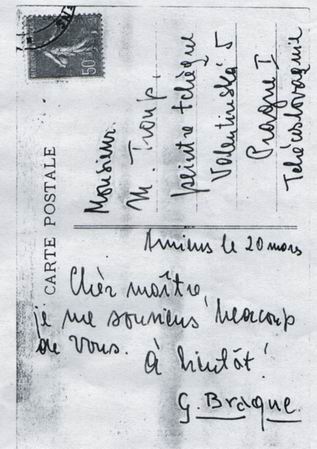 50
CARTE POSTALE
Monsieur
M. Troup.
peintre tchèque
Valentinská 5
Prague I
Tchécoslovaquie
Amiens le 20 mars
Chèr maître,
je me souviens beaucoup
de vous. à bientôt!
G. Braque.